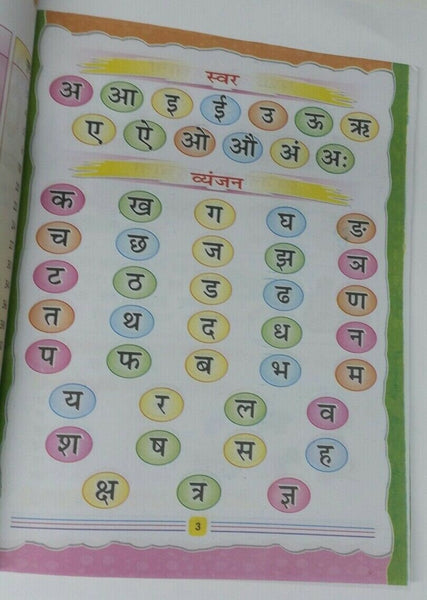 स्वर
अ आ इ ई उ ऊ ऋ
ए ऐ ओ औ अं अः
व्यंजन
क ख ग घ ङ
च छ ज झ ञ
ट ठ ड ढ ण
त थ द ध न
प फ ब भ म
य र ल व
श ष स ह
क्ष त्र ज्ञ
3